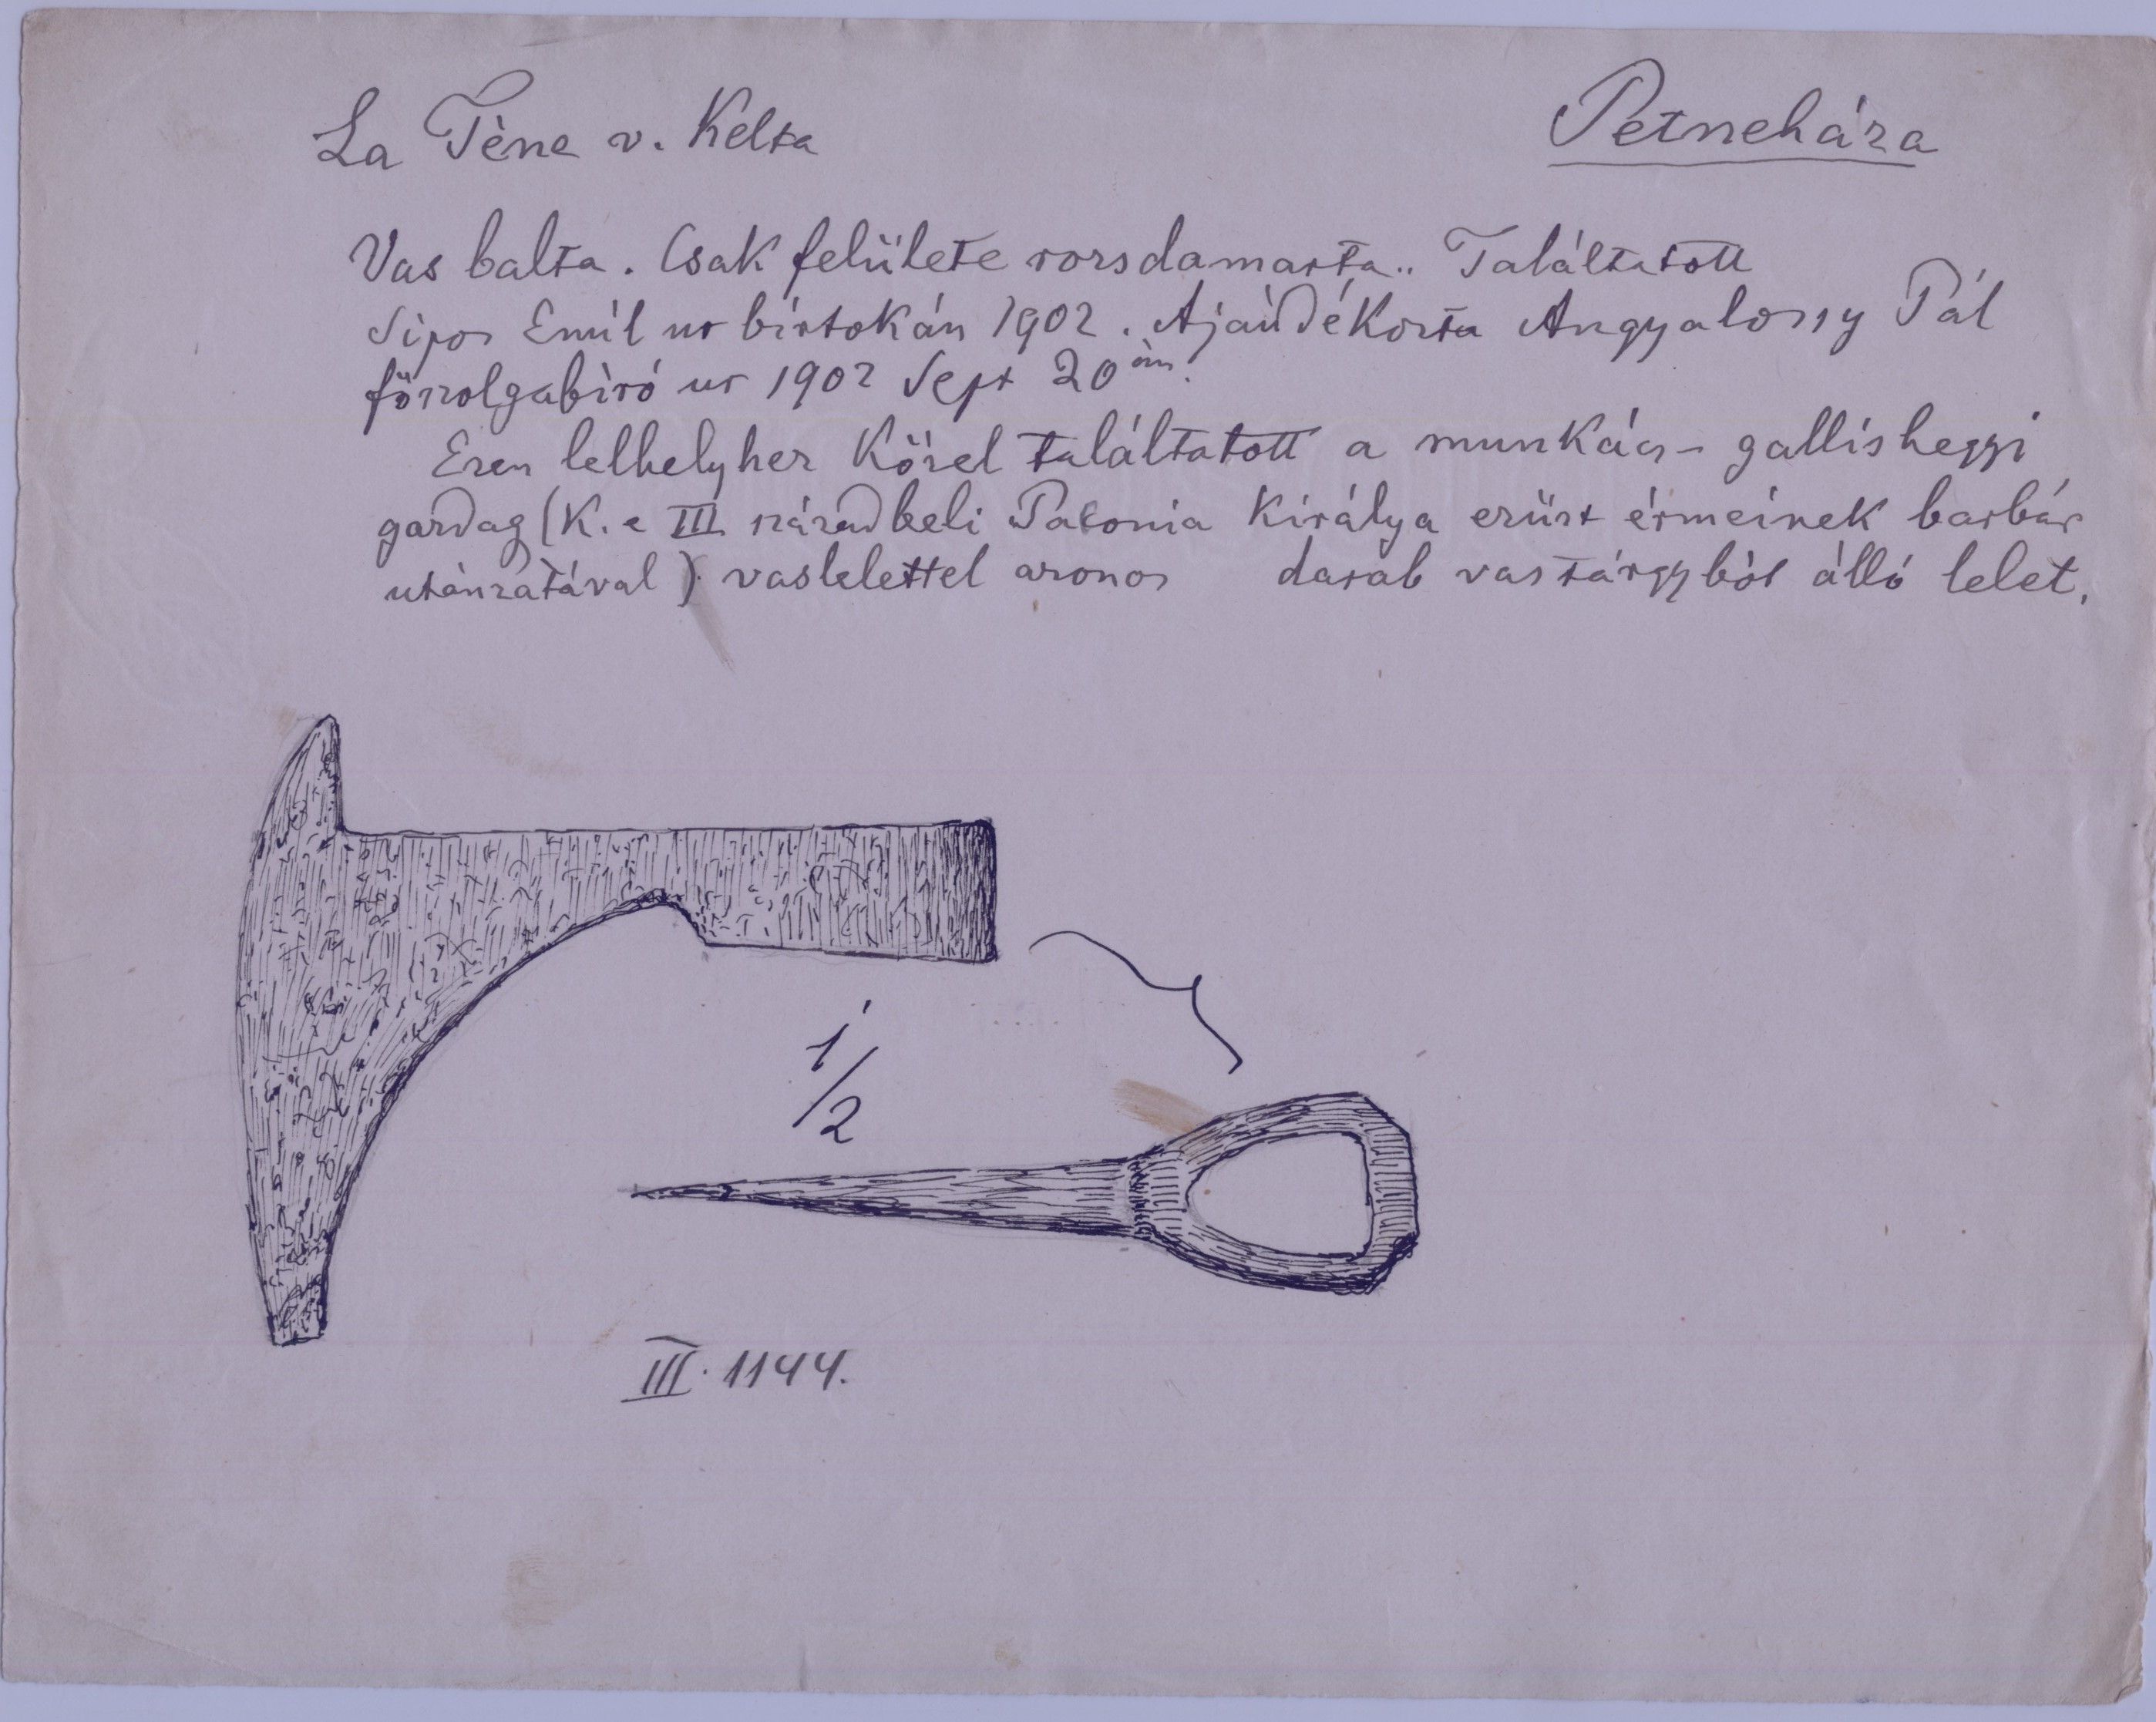 La Tène v. Kelta
Petneháza
Vas balta. Csak felülete rozsdamarta.. Találtatott
Sipos Emil ur birtokán 1902. Ajándékozta Angyalossy Pál
főszolgabiró ur 1902 Sept 20án.
Ezen lelhelyhez közel találtatott a munkács-gallishegyi
gazdag (K. e III századbeli Paeonia királya ezüst érmeinek barbár
utánzatával) vaslelettel azonos darab vastárgyból álló lelet.
1/2
III. 1144.